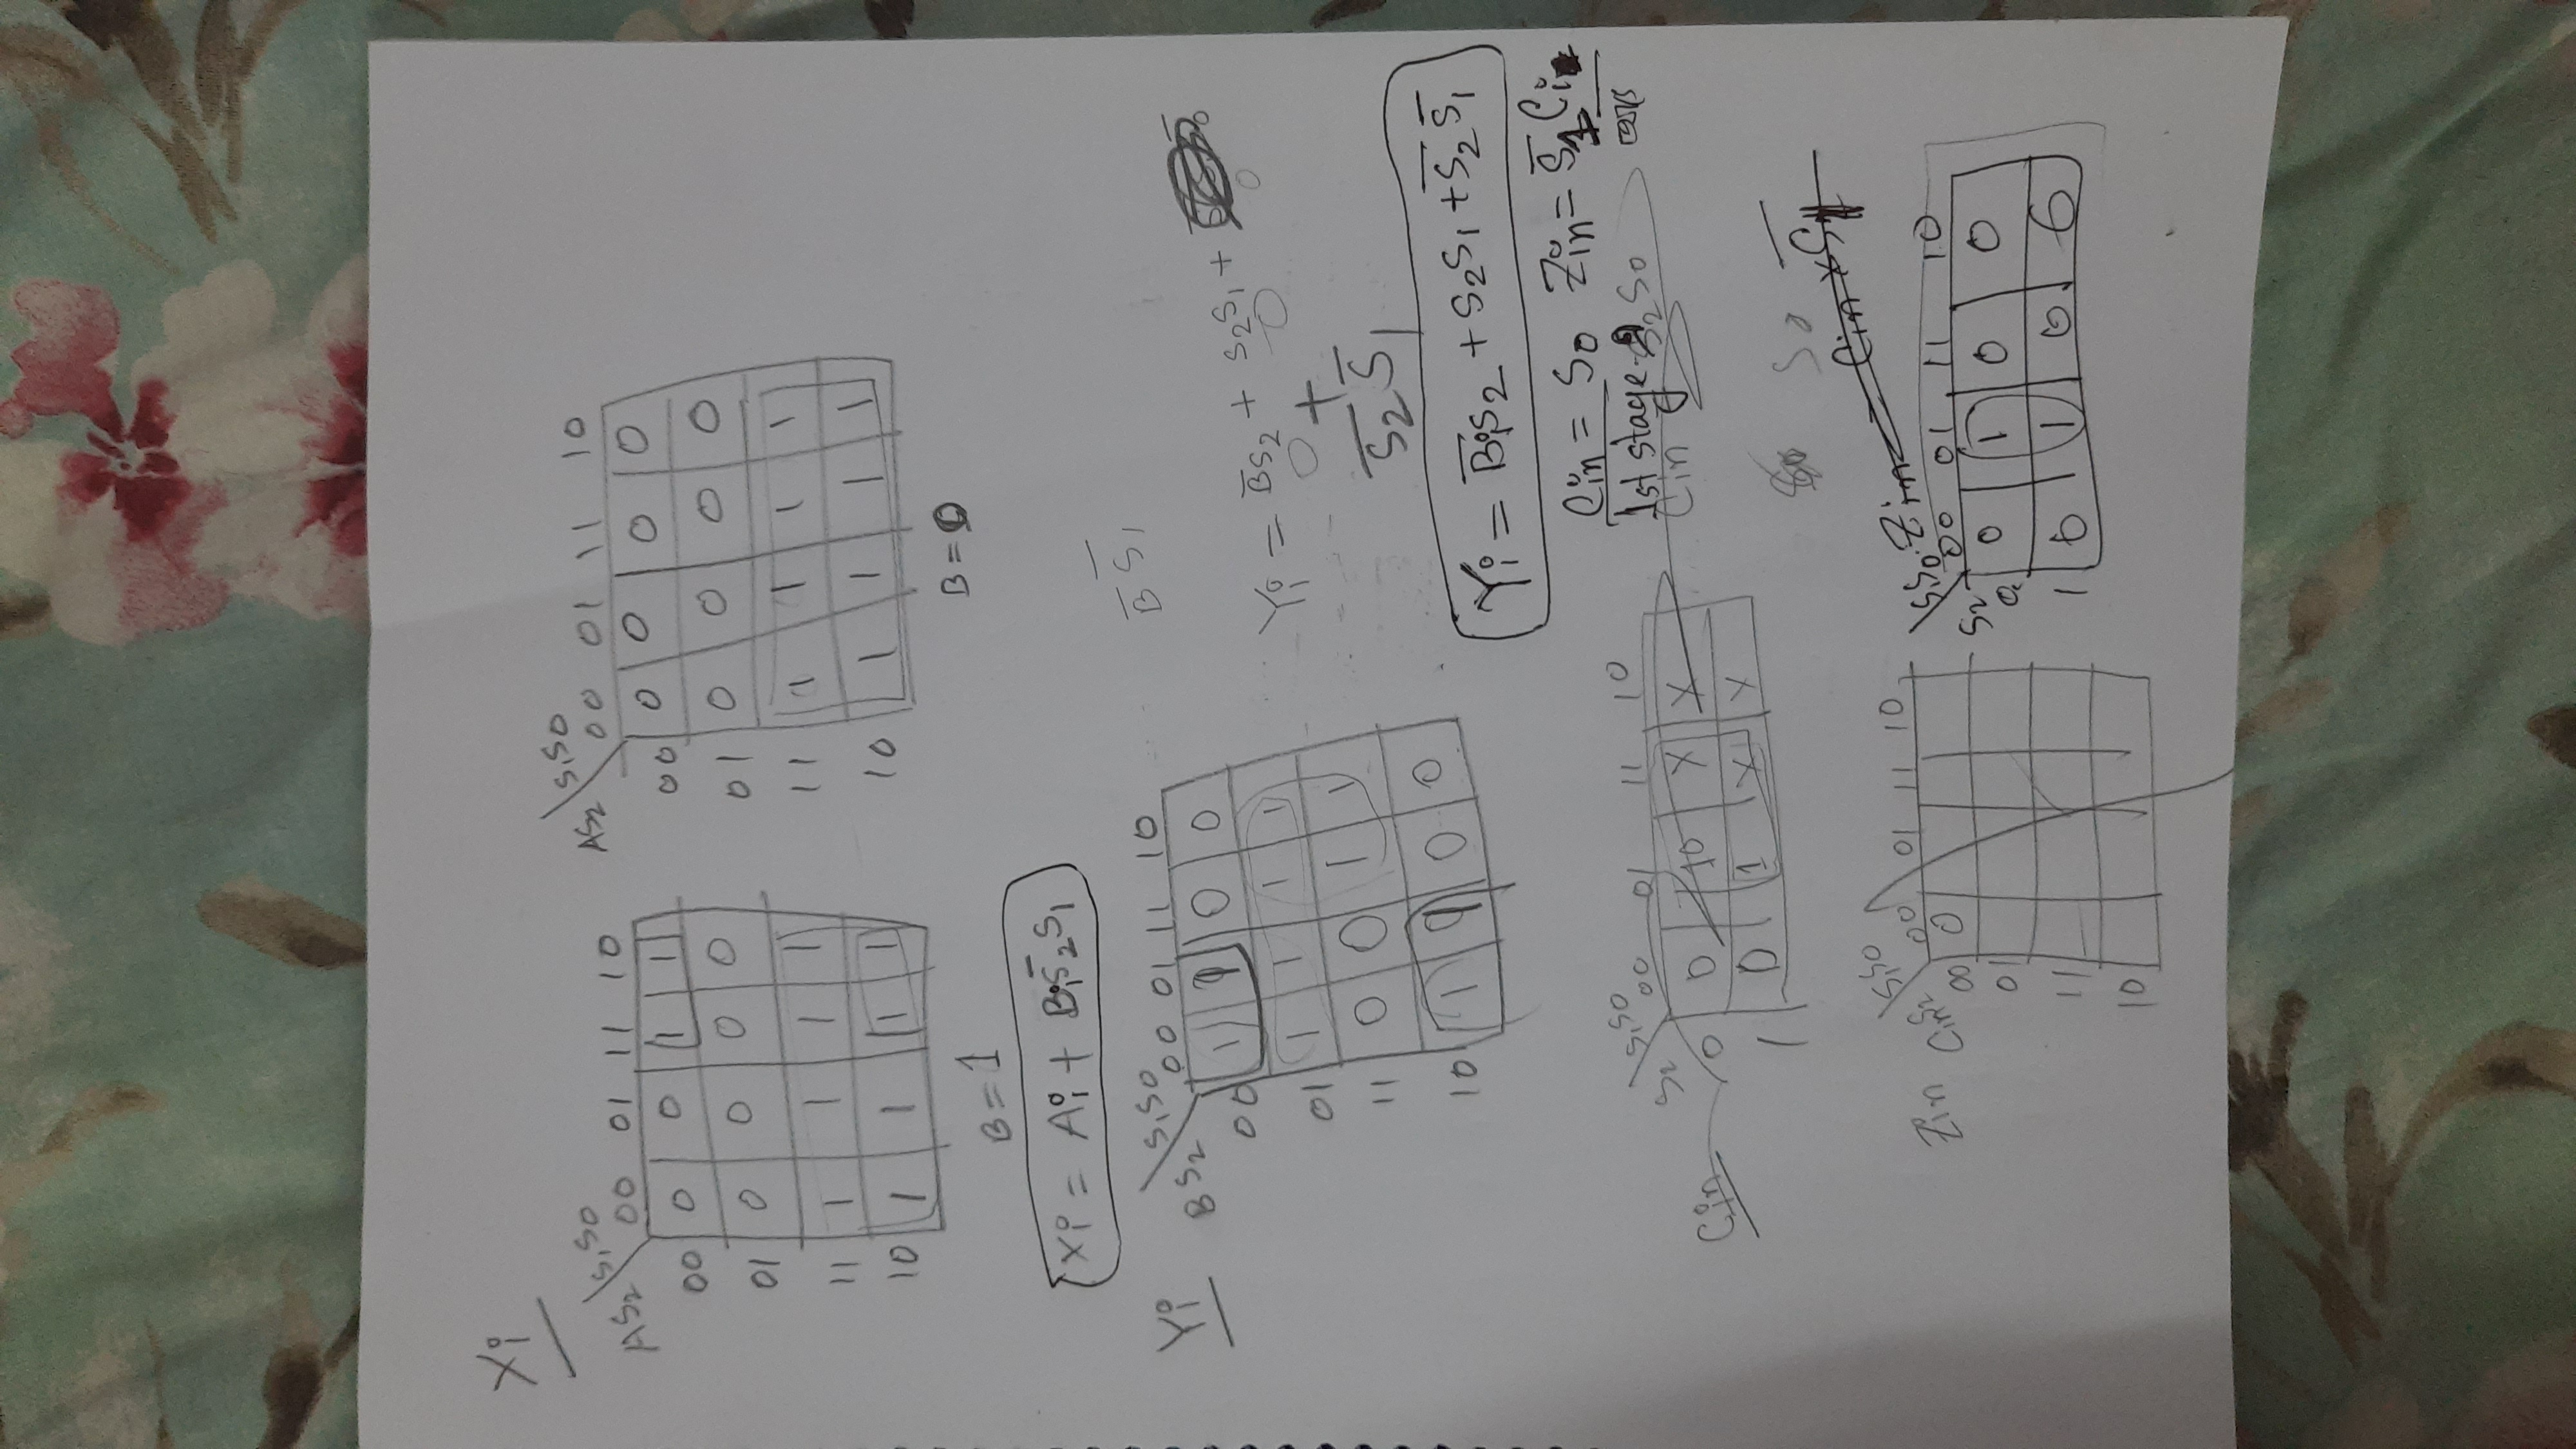 Xi
AS2 \ S1S0 00 01 11 10
00 0 0 1 1
01 0 0 0 0
11 1 1 1 1
10 1 1 1 1
B = 1
AS2 \ S1S0 00 01 11 10
00 0 0 0 0
01 0 0 0 0
11 1 1 1 1
10 1 1 1 1
B = 0
Xi = Ai + BiS̅2S1
B̅ S̅1
Yi
BS2 \ S1S0 00 01 11 10
00 1 1 0 0
01 1 1 1 1
11 0 0 1 1
10 1 1 0 0
Yi = B̅S2 + S2S1 +
0 0 0
+
S̅2 S̅1
Yi = B̅iS2 + S2S1 + S̅2 S̅1
Cin = S0 Zin = S̅1 Ci
1st stage
Cin S2S0
Cin
S2 \ S1S0 00 01 11 10
0 0 X X
1 0 1 X X
S0
Zin = Cin × S̅
Zin
CinS2 \ S1S0 00 01 11 10
00 0
01
11
10
S2 \ S1S0 00 01 11 10
0 0 1 0 0
1 0 1 0 0